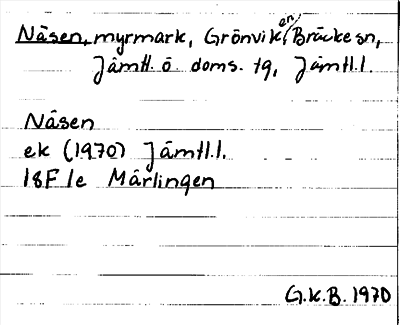 Näsen, myrmark, Grönviken, Bräcke sn,
Jämtl. ö doms. tg, Jämtl.l.
Näsen
ek (1970) Jämtl.l.
18F 1e Märlingen
G.K.B. 1970